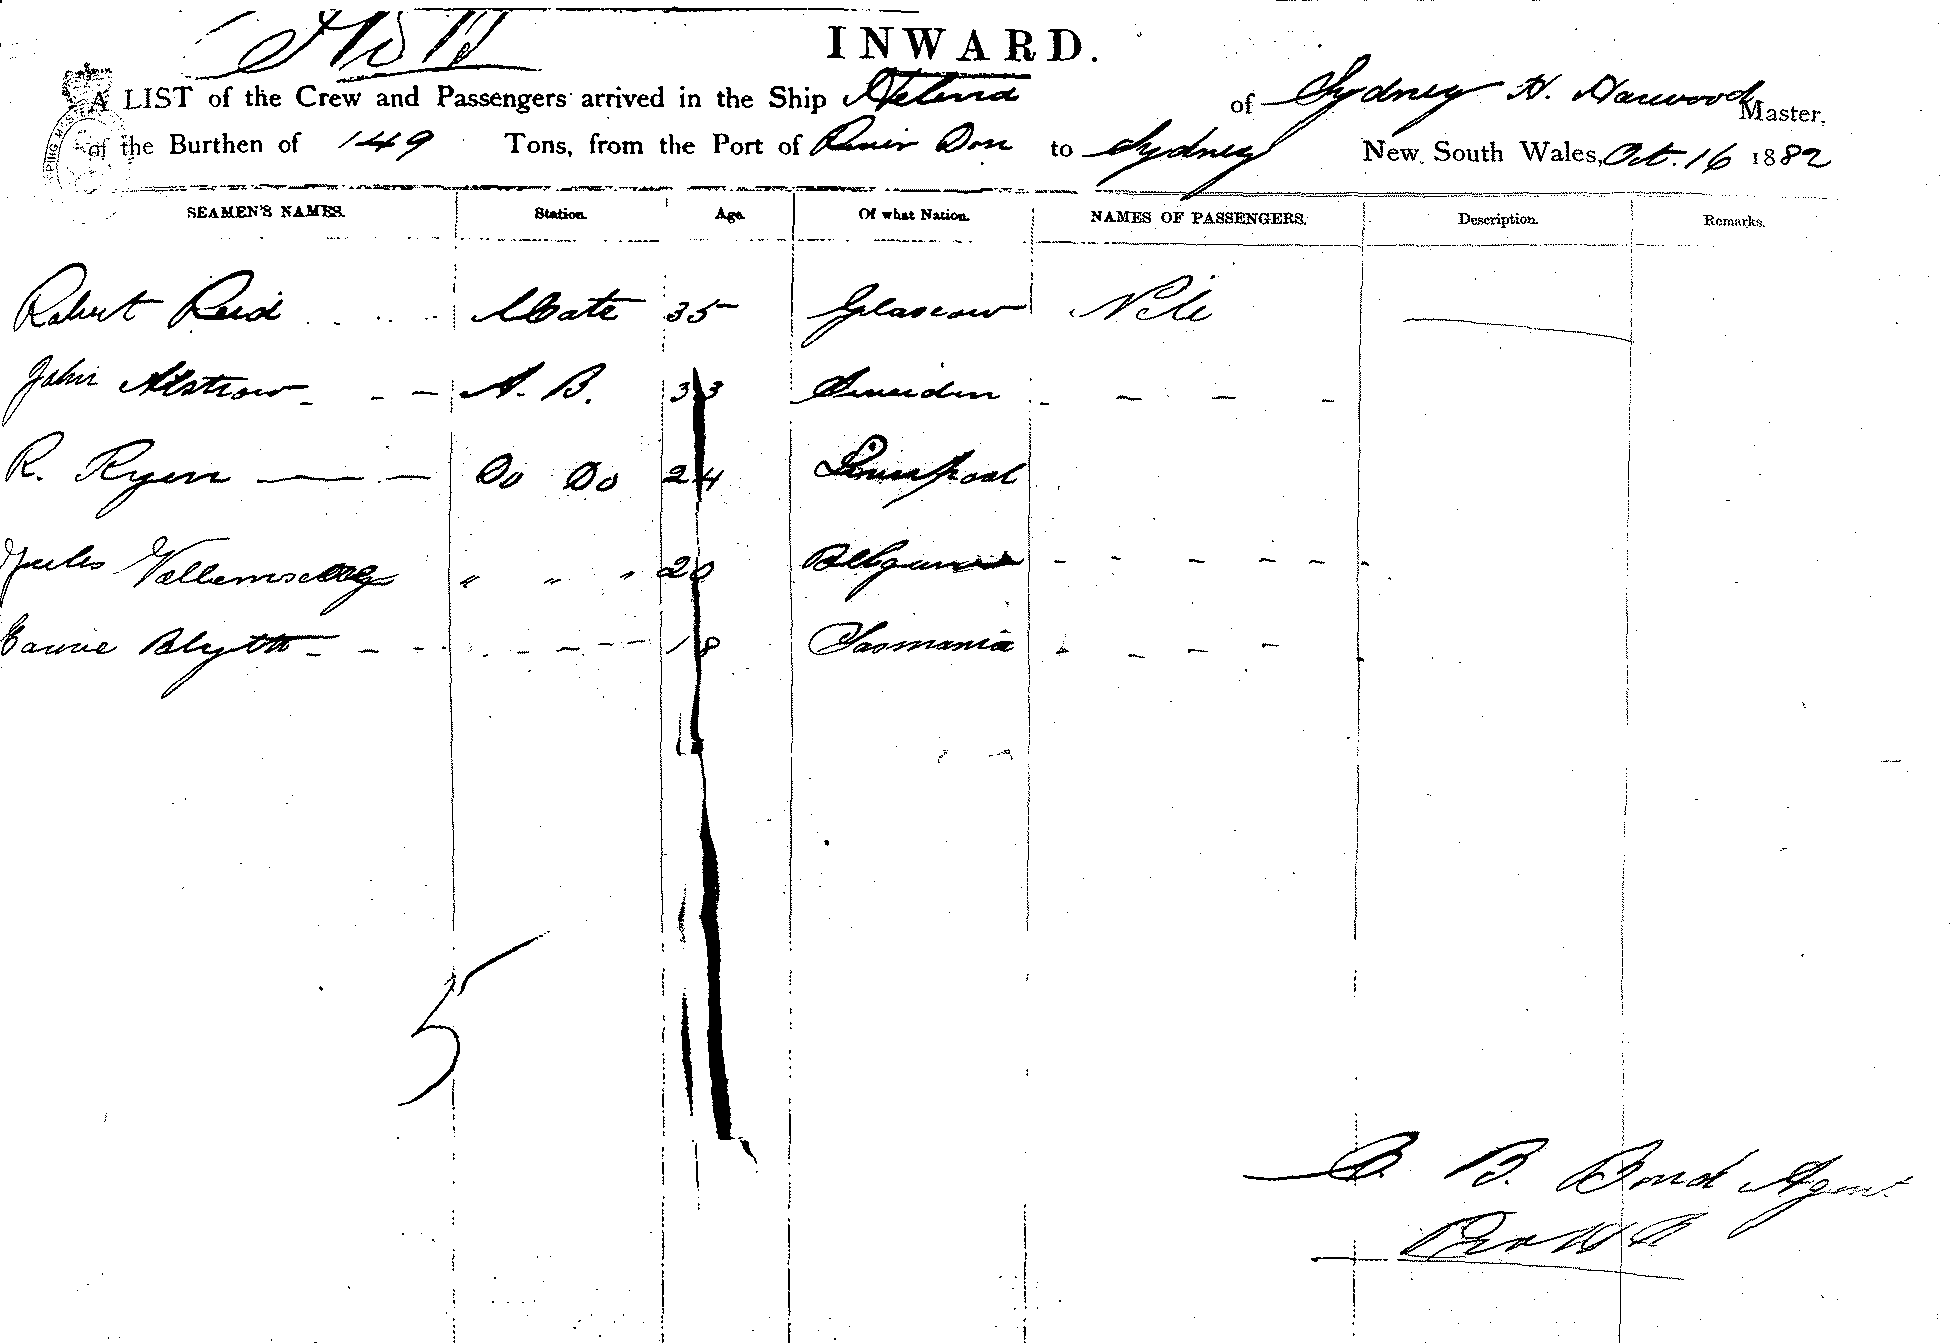 INWARD.
A LIST of the Crew and Passengers arrived in the Ship Helena of Sydney H. Harwood Master,
of the Burthen of 149 Tons, from the Port of River Don to Sydney New South Wales, Oct. 16 1882
SEAMEN'S NAMES. Station. Age. Of what Nation. NAMES OF PASSENGERS. Description. Remarks.
Robert Reid Mate 35 Glascow
John Alstrow A. B. 33 Sweeden
R. Ryen Do Do 24 Liverpool
Jules " " " 20 Belgium
Blyth 18 Tasmania
5
B. Bond Agent